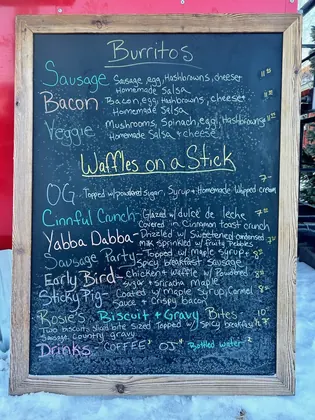 Burritos
Sausage Sausage, egg, Hashbrowns, cheese +
Homemade Salsa
Bacon Bacon, egg, Hashbrowns, cheese +
Homemade Salsa
Veggie Mushrooms, Spinach, egg, Hashbrowns
Homemade Salsa + cheese
Waffles on a Stick
7-
OG- Topped w/ powdered sugar, Syrup + Homemade Whipped cream
Cinnful Crunch- Glazed w/ dulce de leche
Covered in Cinnamon toast crunch
Yabba Dabba- Drizzled w/ Sweetened condensed
milk sprinkled w/ fruity Pebbles
Sausage Party- Topped w/ maple syrup +
Spicy breakfast Sausage
Early Bird- Chicken + Waffle w/ Powdered
Sugar + sriracha maple
Sticky Pig- Coated w/ maple syrup, Carmel
Sauce + Crispy bacon
Rosie's Biscuit + Gravy Bites 10-
Two biscuits sliced bite sized Topped w/ Spicy breakfast
Sausage Country gravy
Drinks- COFFEE OJ Bottled water 2